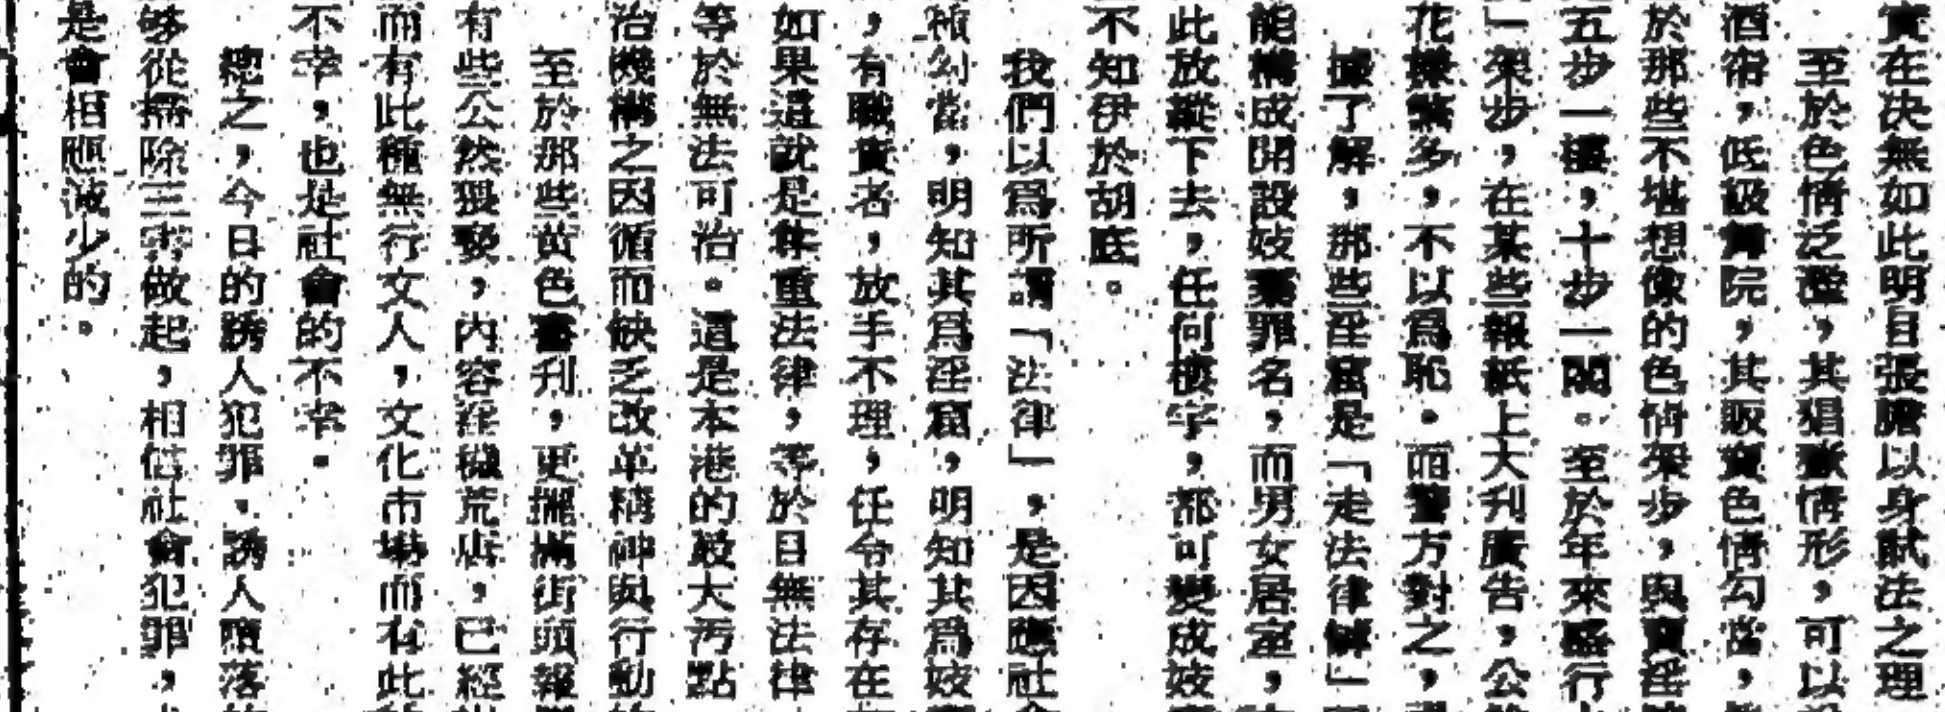 實在决無如此明目張膽以身試法之理
至於色情泛濫，其猖獗情形，可以
酒帘，低級舞院，其販賣色情勾當，
於那些不堪想像的色情架步，與賣淫
五步一樓，十步一閣。至於年來盛行
」架步，在某些報紙上大刋廣告，公
花樣繁多，不以爲恥。而警方對之，
據了解，那些淫窟是「走法律罅」
能構成開設妓寨罪名，而男女居室，
此放縱下去，任何樓宇，都可變成妓
不知伊於胡底。
我們以爲所謂「法律」，是因應社
種勾當，明知其爲淫窟，明知其爲妓
，有職責者，放手不理，任令其存在
如果這就是尊重法律，等於目無法律
等於無法可治。這是本港的最大汚點
治機構之因循而缺乏改革精神與行動
至於那些黃色書刋，更擺滿街頭報
有些公然猥褻，內容淫穢荒唐，已經
而有此種無行文人，文化市場而有此
不幸，也是社會的不幸。
總之，今日的誘人犯罪，誘人墮落
够從掃除三害做起，相信社會犯罪，
是會相應減少的。